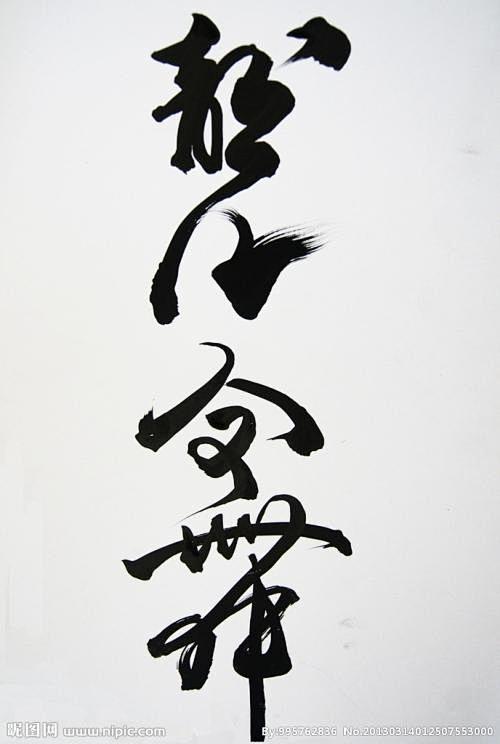 龍飛鳳舞
昵图网 www.nipic.com
By:995762836 No.20130314012507553000